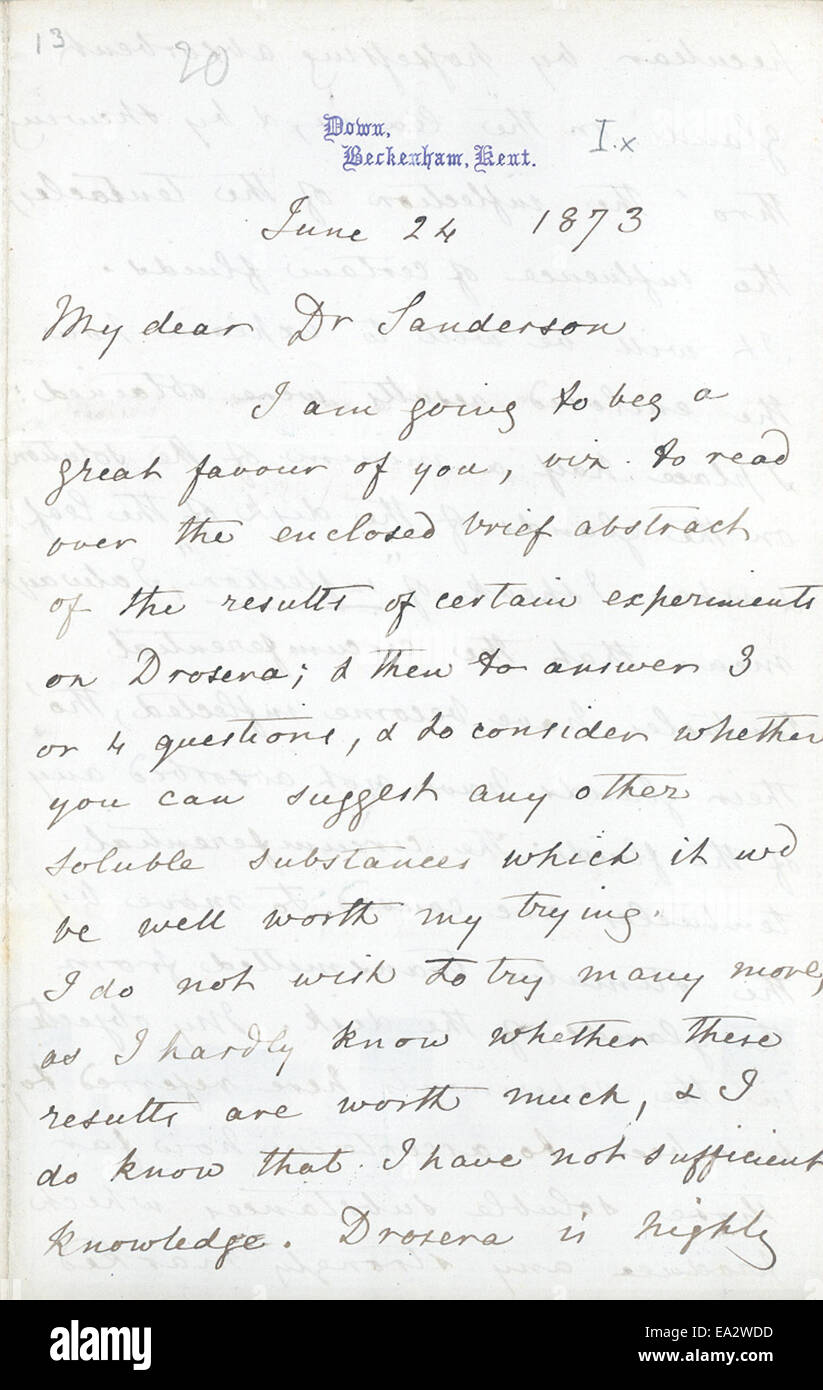 13
20
Down,
Beckenham, Kent.
I.x
June 24 1873
My dear Dr Sanderson
I am going to beg a
great favour of you, viz. to read
over the enclosed brief abstract
of the results of certain experiments
on Drosera; & then to answer 3
or 4 questions, & to consider whether
you can suggest any other
soluble substances which it wd
be well worth my trying.
I do not wish to try many more,
as I hardly know whether these
results are worth much, & I
do know that I have not sufficient
knowledge. Drosera is highly
alamy
Image ID: EA2WDD
www.alamy.com